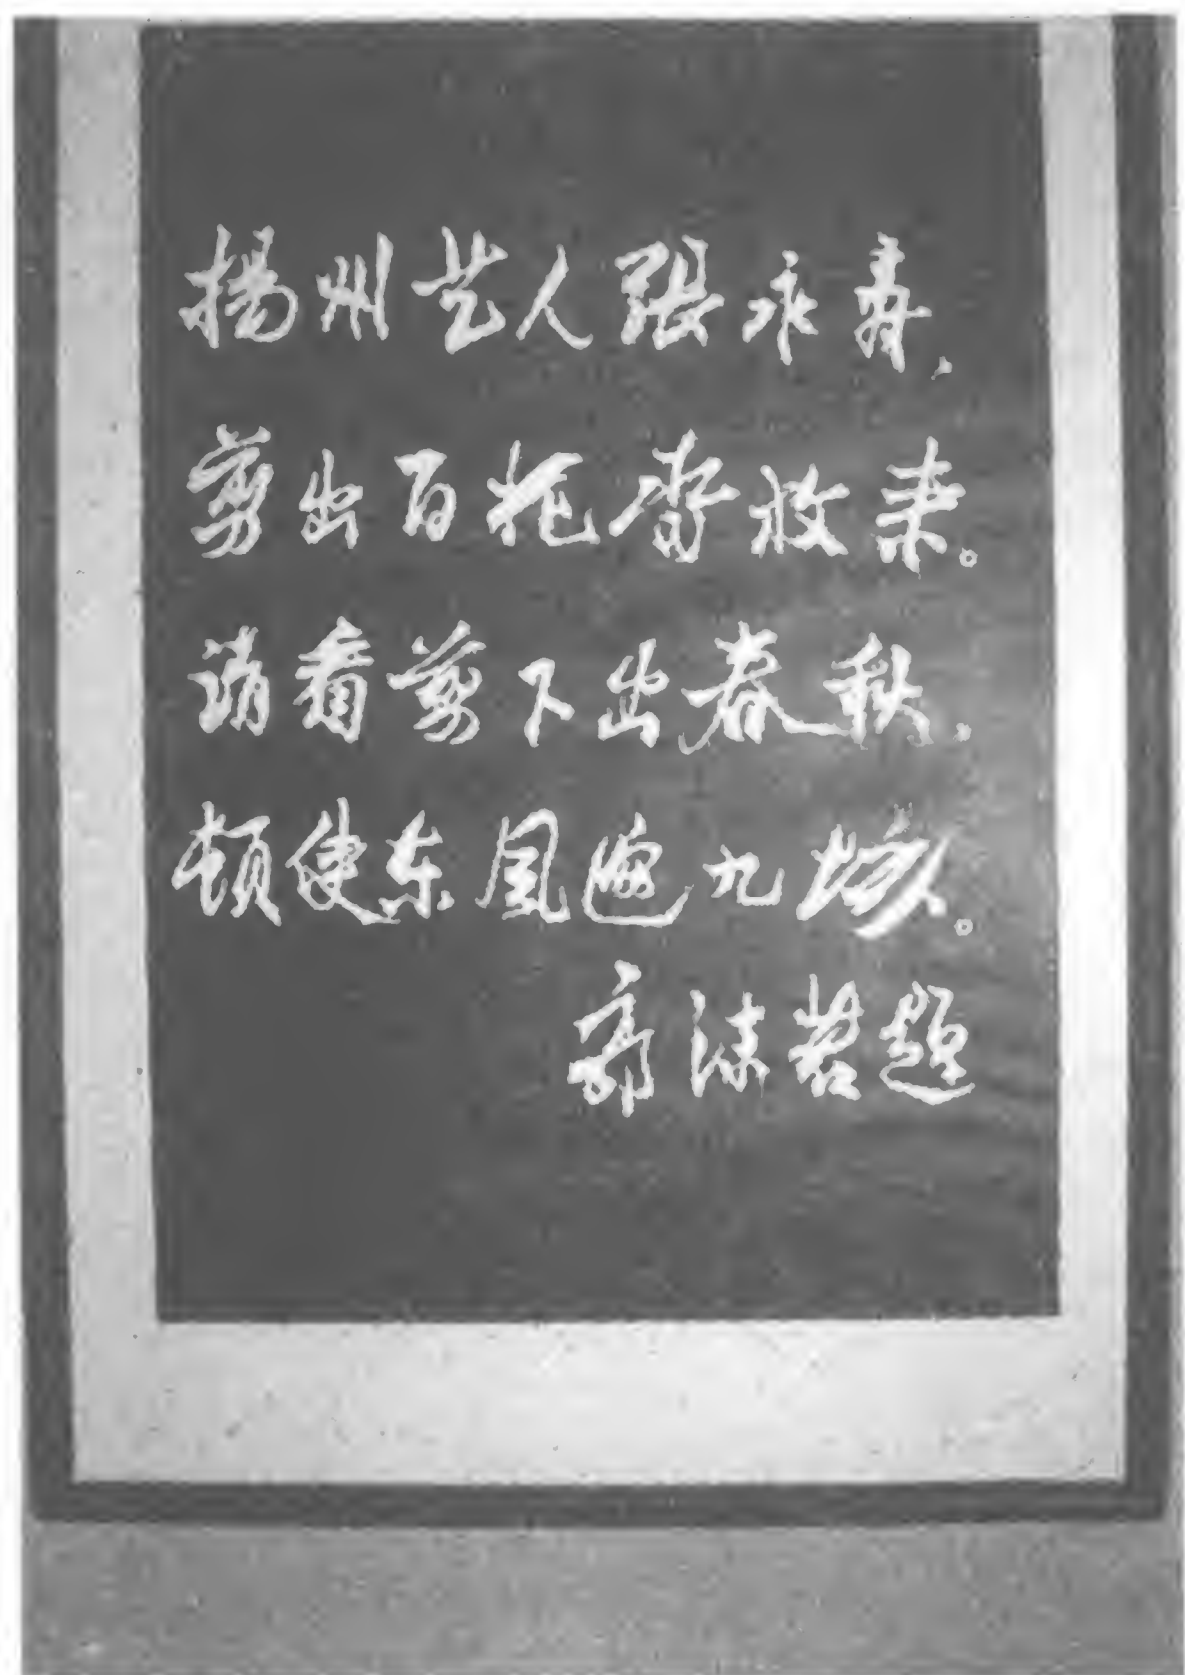 揚州艺人張永寿，
剪出百花齐放来。
请看剪下出春秋，
頓使东風遍九垓。
郭沫若題